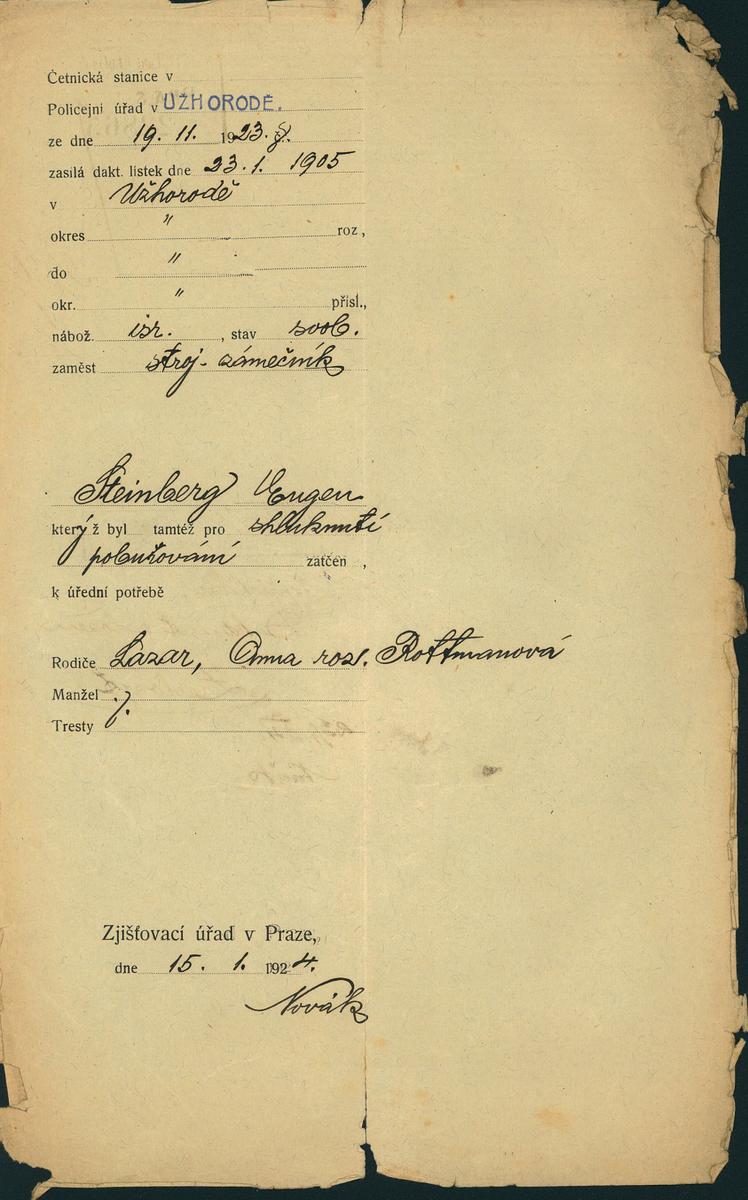 Četnická stanice v
Policejní úřad v UŽHORODĚ.
ze dne 19. 11. 1923.
zasílá dakt. lístek dne 23. 1. 1905
v Užhorodě
okres " roz,
do "
okr. " přísl.,
nábož. isr. , stav svob.
zaměst stroj. zámečník
Steinberg Eugen
který ž byl tamtéž pro shluknutí
pobuřování zatčen ,
k úřední potřebě
Rodiče Lazar, Anna roz. Rottmanová
Manžel
Tresty
Zjišťovací úřad v Praze,
dne 15. 1. 1924.
Novák